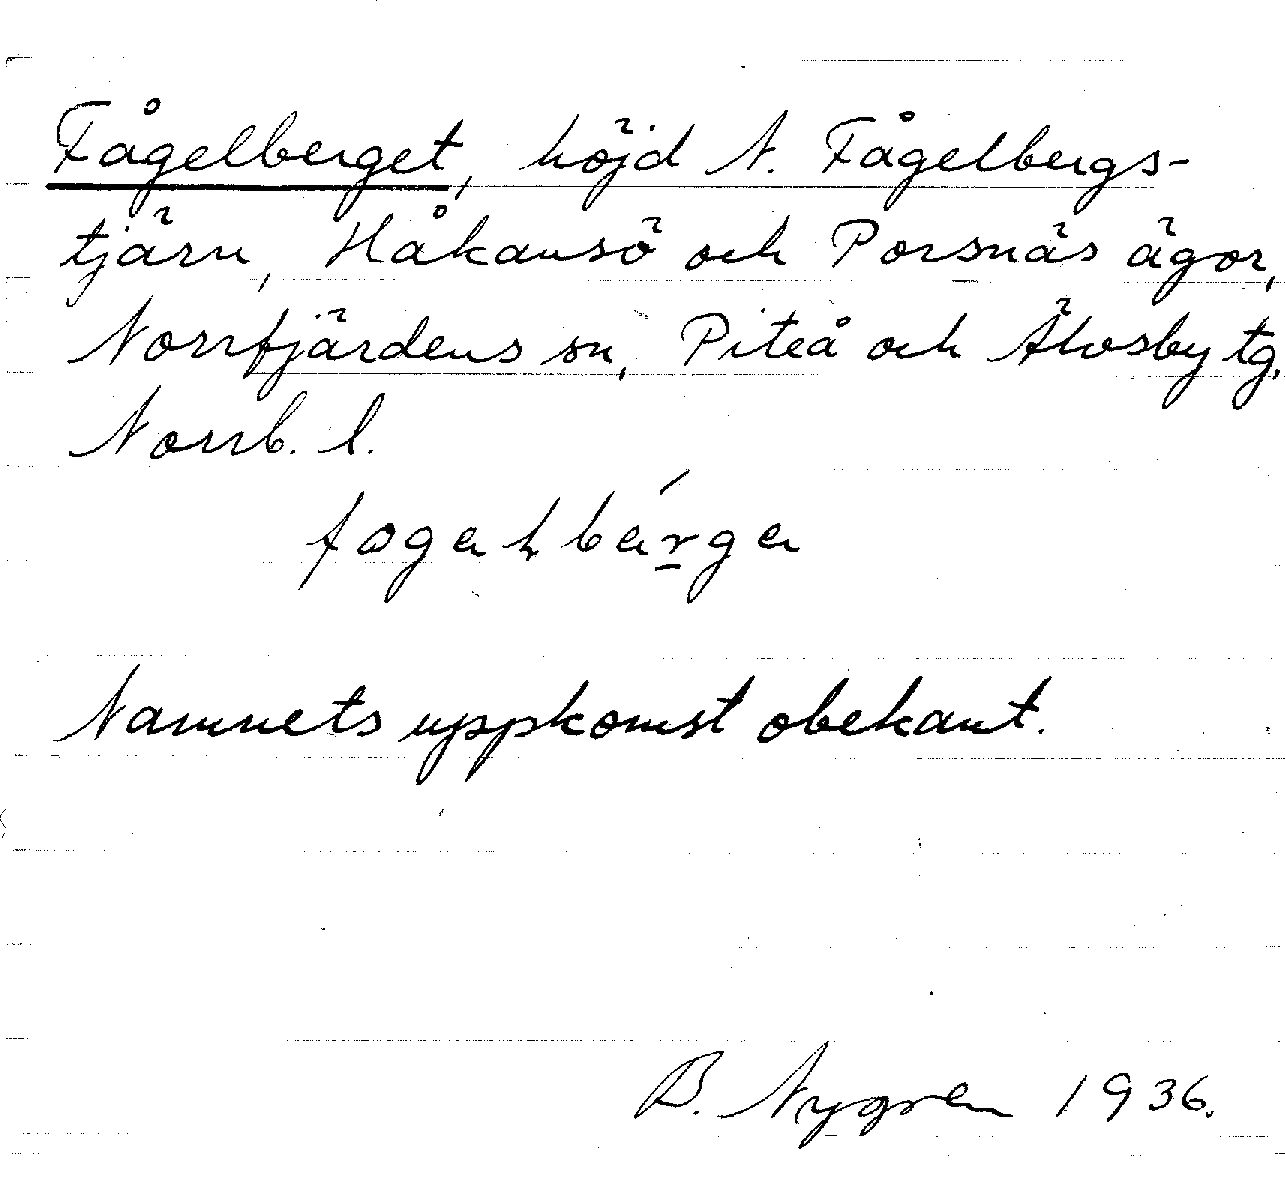 Fågelberget, höjd N. Fågelbergs-
tjärn, Håkansö och Porsnäs ägor,
Norrfjärdens sn, Piteå och Älvsby tg.
Norrb. l.
Namnets uppkomst obekant.
B. Nygren 1936.